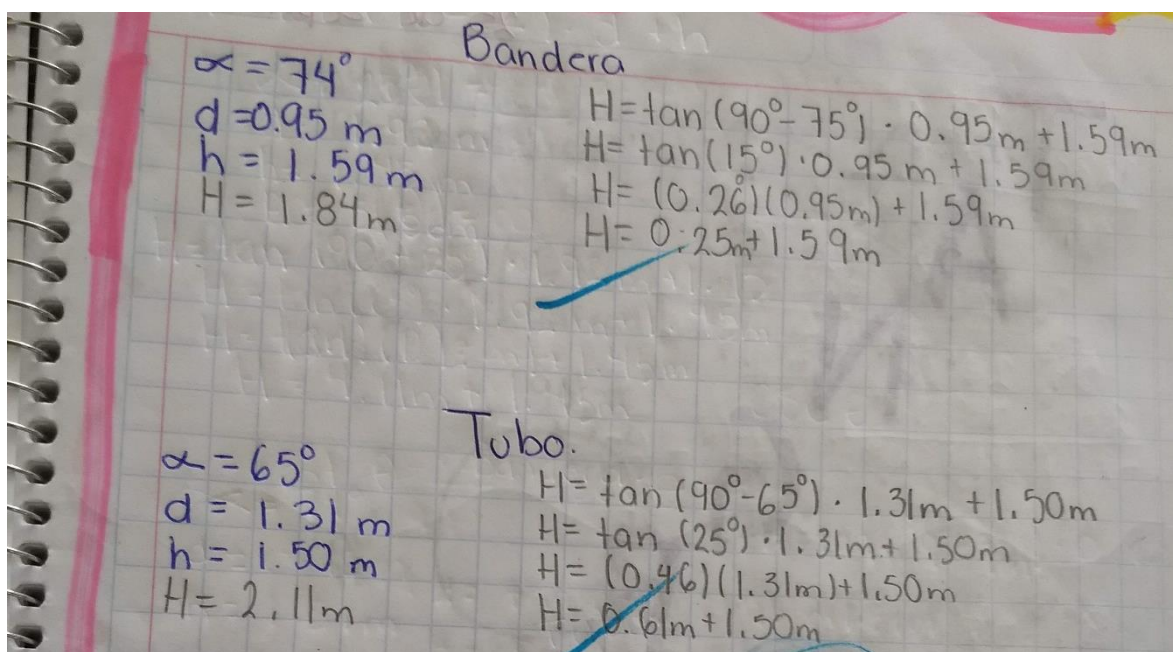 Bandera
α = 74°
d = 0.95 m
h = 1.59 m
H = 1.84 m
H = tan (90° - 75°) · 0.95 m + 1.59 m
H = tan (15°) · 0.95 m + 1.59 m
H = (0.26°)(0.95m) + 1.59 m
H = 0.25m + 1.59 m
Tubo.
α = 65°
d = 1.31 m
h = 1.50 m
H = 2.11 m
H = tan (90° - 65°) · 1.31m + 1.50m
H = tan (25°) · 1.31m + 1.50m
H = (0.46)(1.31m) + 1.50m
H = 0.61m + 1.50m